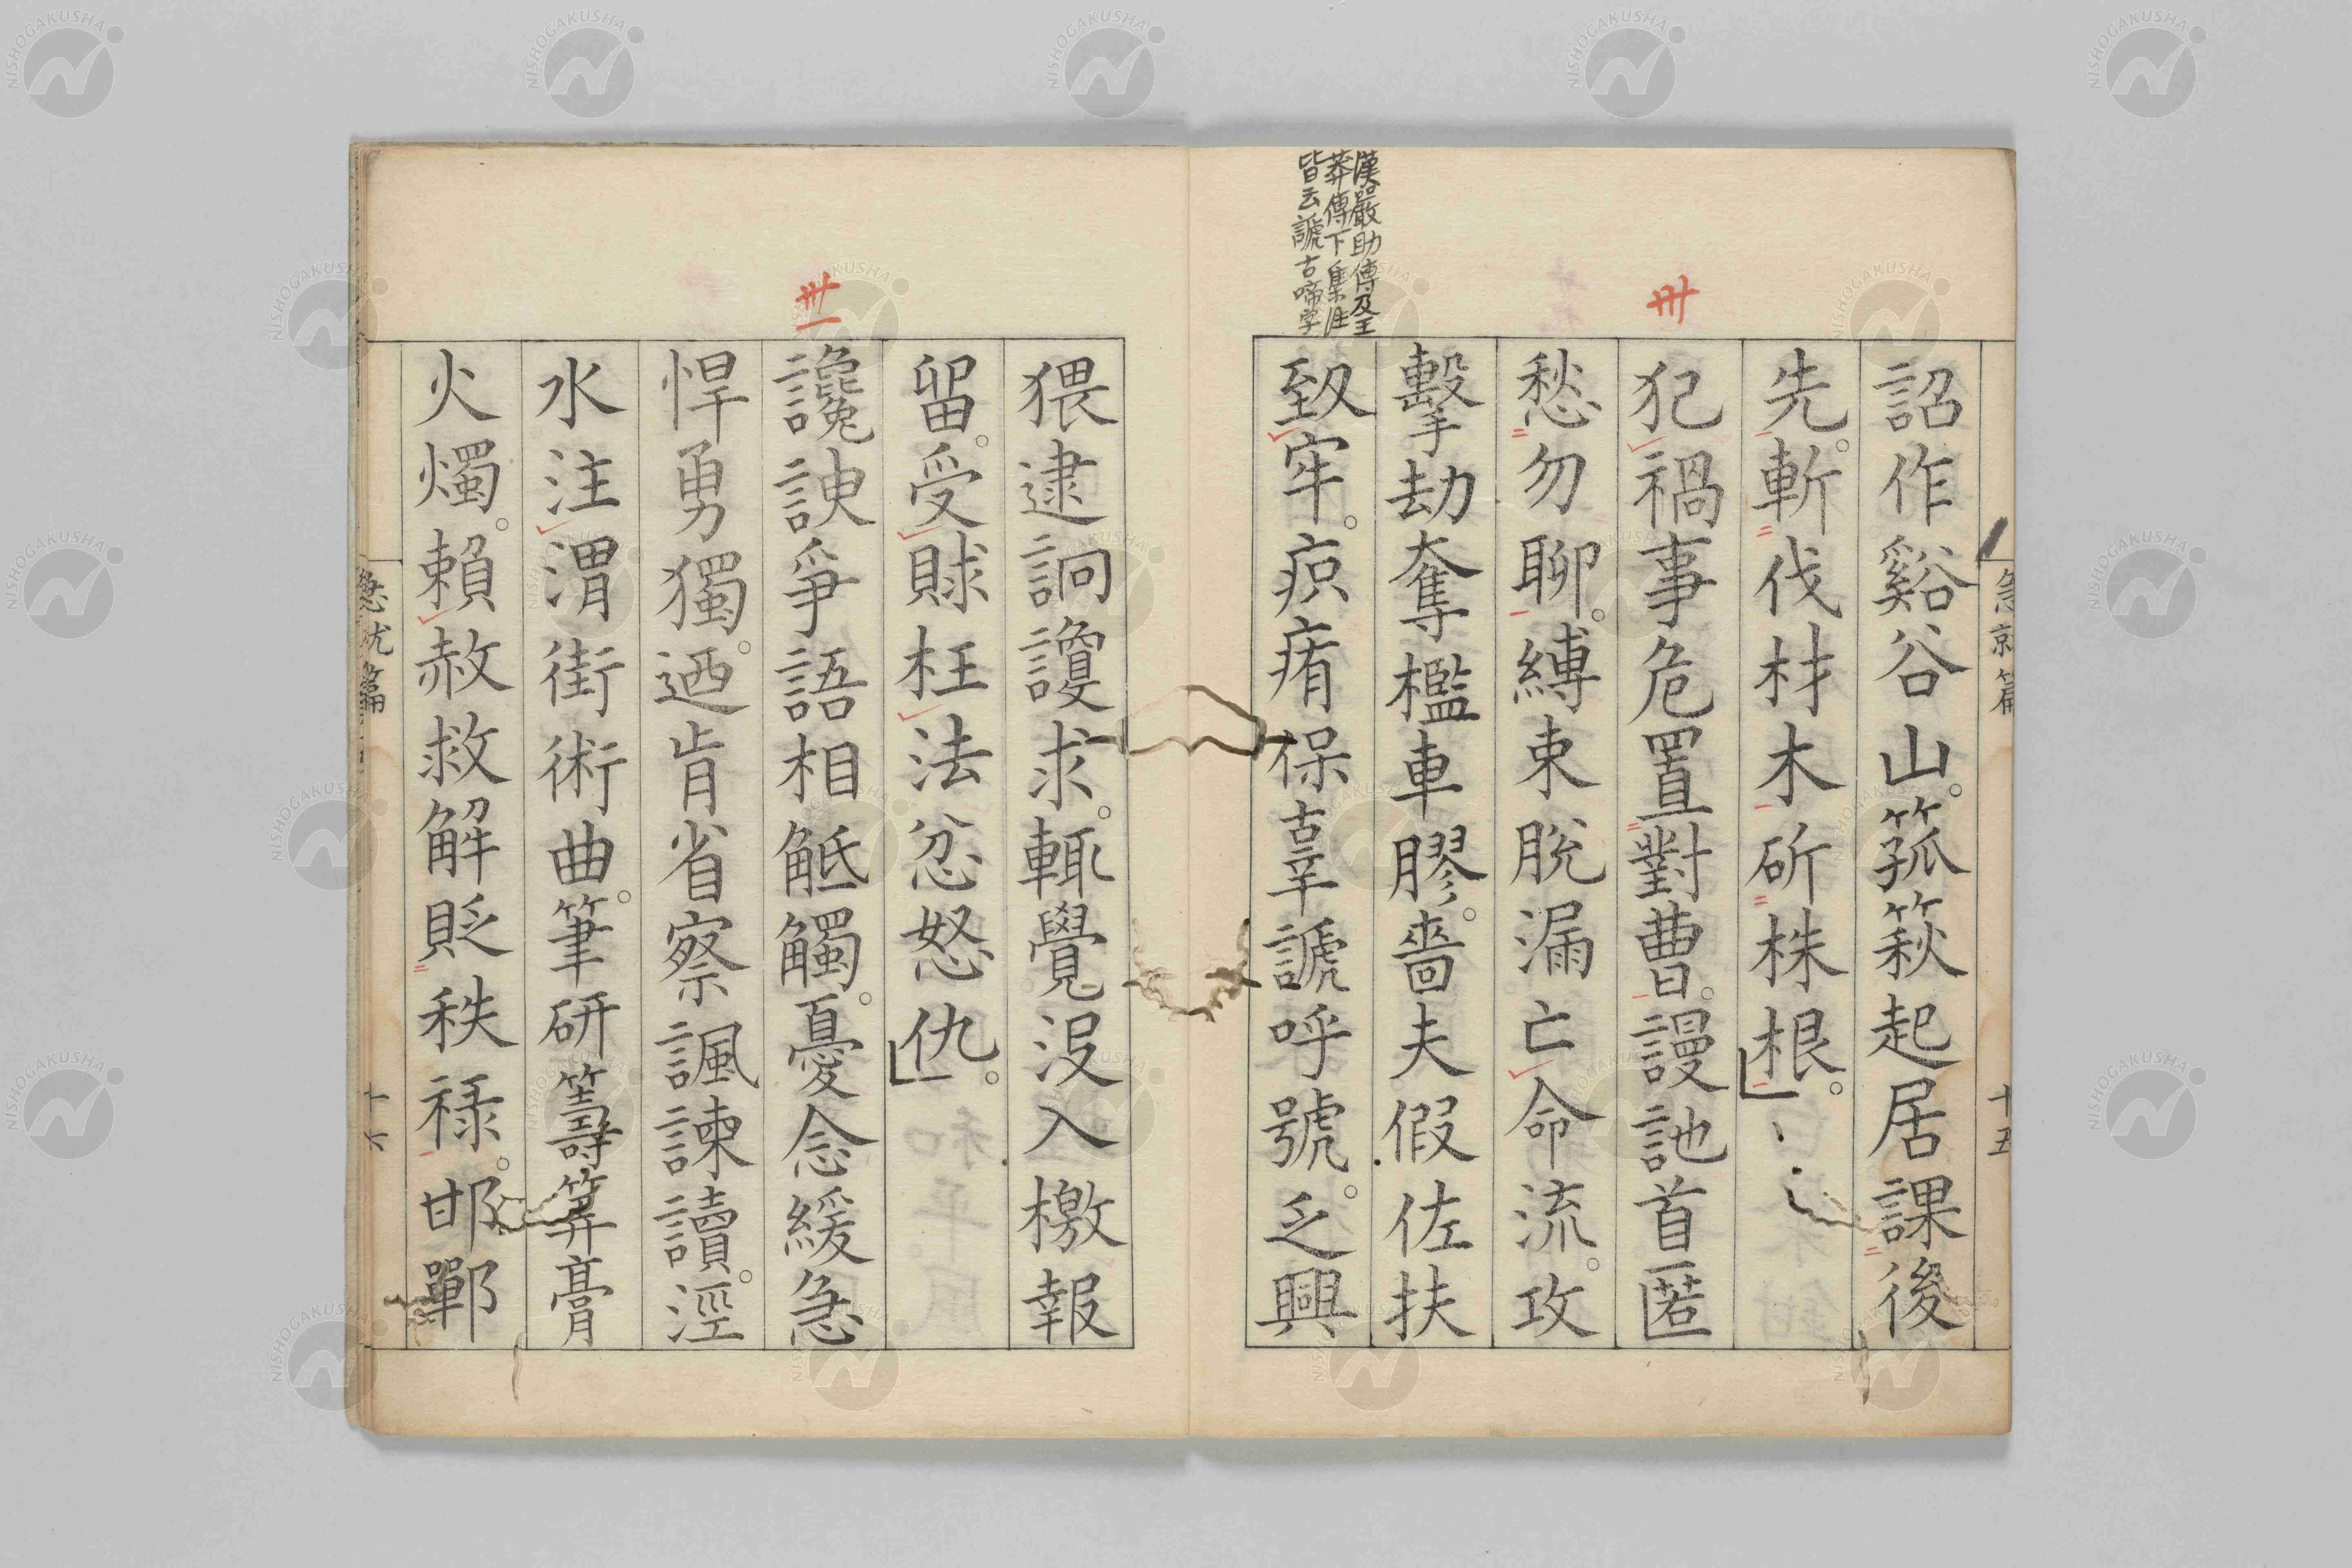 急就篇
十五
詔作谿谷山。箛篍起居課後
先。斬伐材木斫株根。
卅
犯禍事危置對曹。謾訑首匿
愁勿聊。縛束脫漏亡命流。攻
擊劫奪檻車膠。嗇夫假佐扶
致牢。疻痏保辜謕呼號。乏興
漢嚴助傳及王
莽傳下集注
皆云謕古啼字
猥逮詗讂求。輒覺沒入檄報
留。受賕枉法忿怒仇。
卅一
讒諛爭語相觝觸。憂念緩急
悍勇獨。迺肯省察諷諫讀。涇
水注渭街術曲。筆研籌筭膏
火燭。賴赦救解貶秩祿。邯鄲
急就篇
十六
NISHOGAKUSHA